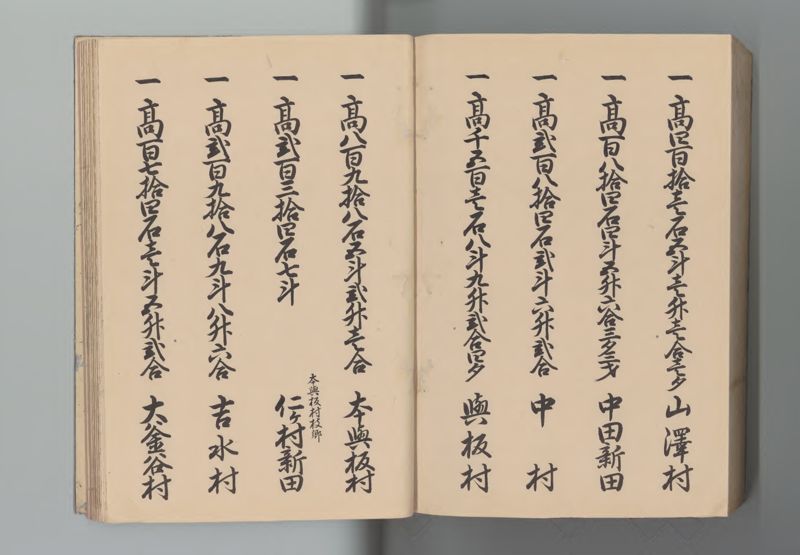 一高四百拾壱石五斗壱升壱合壱夕 山澤村
一高百八拾四石四斗五升六合三夕三才 中田新田
一高弐百八拾四石弐斗六升弐合 中村
一高千五百壱石八斗九升弐合四夕 與板村
一高八百九拾八石五斗弐升壱合 本與板村
本與板村枝郷
一高弐百三拾四石七斗 仁ヶ村新田
一高弐百九拾八石九斗八升六合 吉水村
一高百七拾四石壱斗五升弐合 大釜谷村